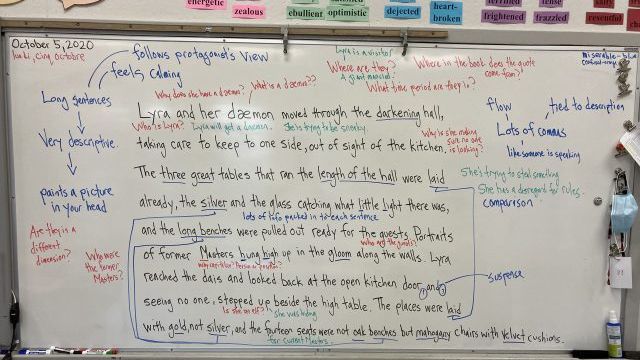 energetic
zealous
ebullient
optimistic
dejected
heart-broken
terrified
frightened
tense
frazzled
resentful
October 5, 2020
follows protagonist's view
feels calming
Long sentences
Very descriptive
paints a picture
in your head
Are they in a
different
dimension?
Who were
the former
Masters?
Lyra is a visitor
Where are they?
Where in the book does the quote
come from?
What time period are they in?
Why does she have a dæmon?
What is a dæmon??
Lyra and her dæmon moved through the darkening hall,
Who is Lyra?
Lyra will get a dæmon.
She is trying to be sneaky.
Why is she making
sure no one
is looking?
taking care to keep to one side, out of sight of the kitchen.
The three great tables that ran the length of the hall were laid
already, the silver and the glass catching what little light there was,
lots of info packed into each sentence
and the long benches were pulled out ready for the guests. Portraits
Who are the guests?
of former Masters hung high up in the gloom along the walls. Lyra
reached the dais and looked back at the open kitchen door, and,
seeing no one, stepped up beside the high table. The places were laid
Is she an elf?
She was hiding
with gold, not silver, and the fourteen seats were not oak benches but mahogany chairs with velvet cushions.
for current Masters.
flow
tied to description
Lots of commas
like someone is speaking
She's trying to steal something
She has a disregard for rules.
comparison
suspense